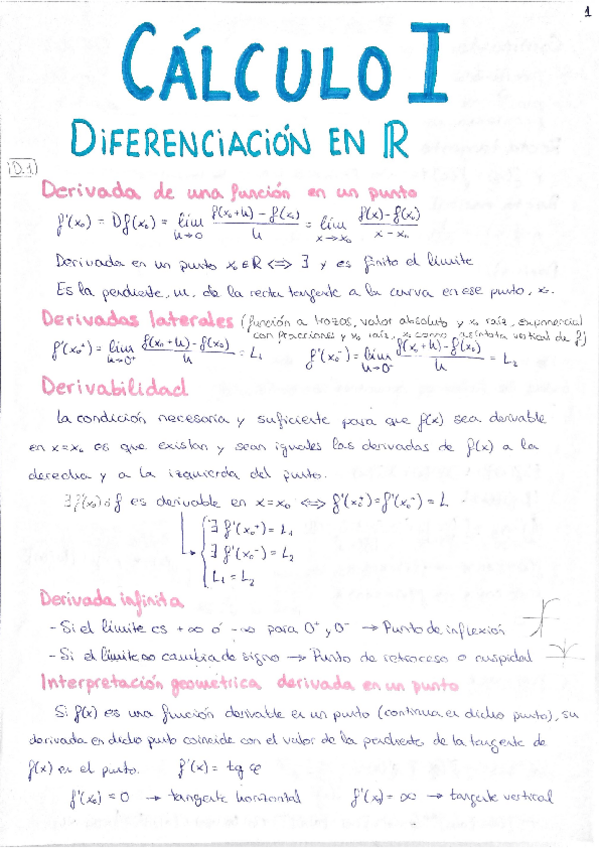 1
CÁLCULO I
DIFERENCIACIÓN EN ℝ
D.1)
Derivada de una función en un punto
f'(x₀) = Df(x₀) = lím h→0 (f(x₀+h) - f(x₀))/h = lím x→x₀ (f(x) - f(x₀))/(x - x₀)
Derivada en un punto x₀ ∈ ℝ <=> ∃ y es finito el límite
Es la pendiente, m, de la recta tangente a la curva en ese punto, x₀.
Derivadas laterales (función a trozos, valor absoluto y x₀ raíz, exponencial
con fracciones y x₀ raíz, x₀ como asíntota vertical de f)
f'(x₀⁺) = lím h→0⁺ (f(x₀+h) - f(x₀))/h = L₁ f'(x₀⁻) = lím h→0⁻ (f(x₀+h) - f(x₀))/h = L₂
Derivabilidad
La condición necesaria y suficiente para que f(x) sea derivable
en x=x₀ es que existan y sean iguales las derivadas de f(x) a la
derecha y a la izquierda del punto.
∃ f'(x₀) ó f es derivable en x=x₀ <=> f'(x₀⁺) = f'(x₀⁻) = L
∃ f'(x₀⁺) = L₁
∃ f'(x₀⁻) = L₂
L₁ = L₂
Derivada infinita
- Si el límite es +∞ ó -∞ para 0⁺ y 0⁻ → Punto de inflexión
- Si el límite ∞ cambia de signo → Punto de retroceso o cuspidal
Interpretación geométrica derivada en un punto
Si f(x) es una función derivable en un punto (continua en dicho punto), su
derivada en dicho punto coincide con el valor de la pendiente de la tangente de
f(x) en el punto. f'(x) = tg φ
f'(x₀) = 0 → tangente horizontal f'(x) = ∞ → tangente vertical